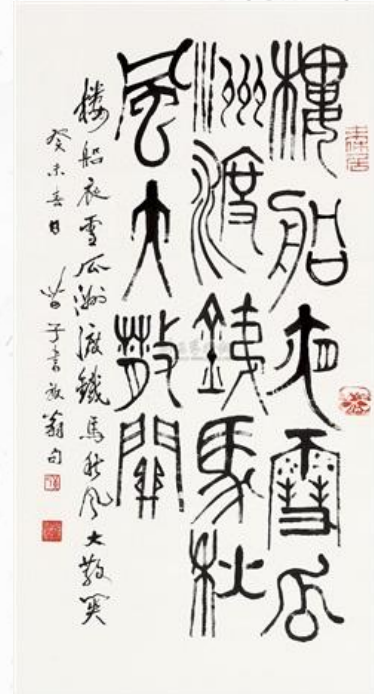 樓船夜雪瓜
洲渡銕馬秋
風大散關
楼船夜雪瓜洲渡鐵馬秋风大散関
癸未春日 子書放翁句